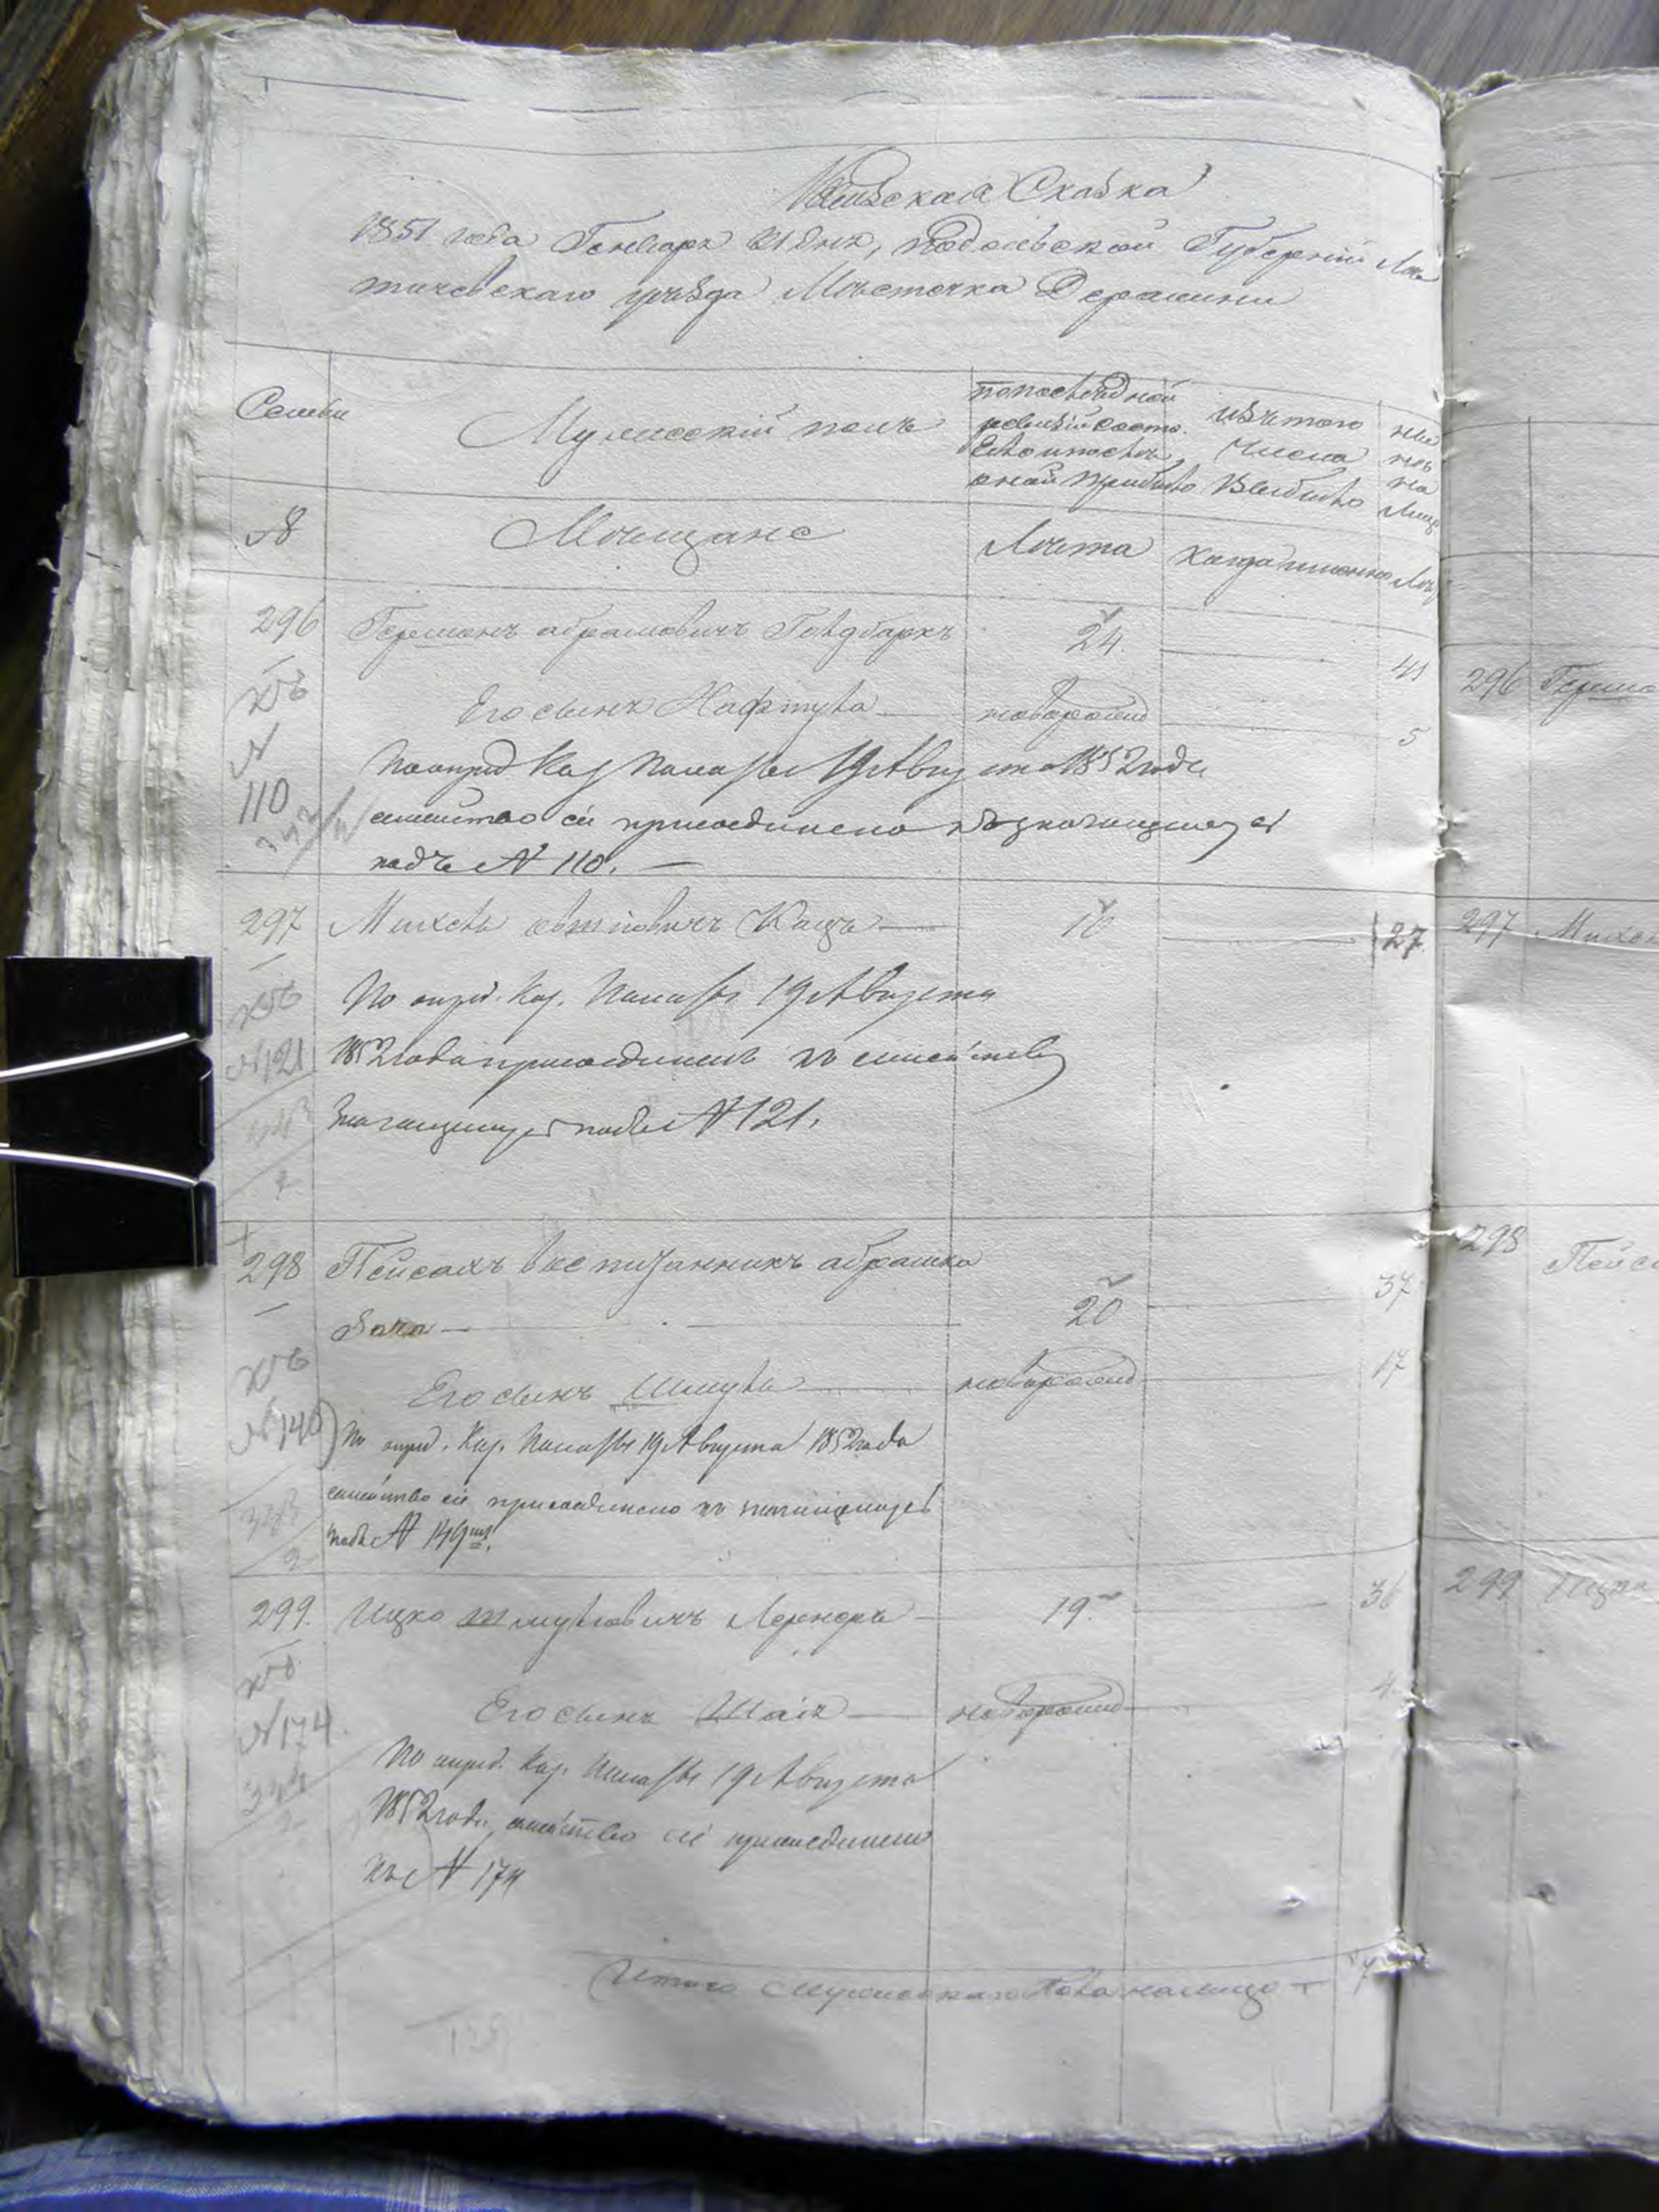 Сказка
1851 года Генваря 21 дня, Подольской Губерніи Ле
тичевскаго уѣзда Мѣстечка Деражни
Семьи
Мужескій полъ
попослѣдней
ревизіи состо.
яло и послѣ
оной прибыло
изъ того
числа
выбыло
ны
нѣ
на
лицо
№
Мѣщане
Лѣта
когда именно
Лѣт
296
Гершонъ абрамовичъ Голдбархъ
24.
41
Его сынъ Нафтула
новорожд
5
къ
№
110
По опред Каз Палаты 19 Августа 1852 года
семейство сіе присоединено къ значащемуся
подъ № 110.
297
Михель Кацъ
10
27
къ
№ 121
По опред. Каз. Палаты 19 Августа
1852 года присоединенъ къ семейству
значащемуся подъ № 121.
298
Пейсахъ воспитанникъ абрамка
Зака
20
37
Его сынъ Шмуль
новорожд
17
къ
№ 149
По опред. Каз. Палаты 19 Августа 1852 года
семейство сіе присоединено къ значащемуся
подъ № 149
299.
Ицко шмулиовичъ Лернеръ
19
36
Его сынъ Шаія
новорожд
4
къ
№ 174.
По опред. Каз. Палаты 19 Августа
1852 года семейство сіе присоединено
къ № 174
Итого мужескаго пола налицо
7
296 Гершо
297 Михел
298
Пейса
299 Ицко